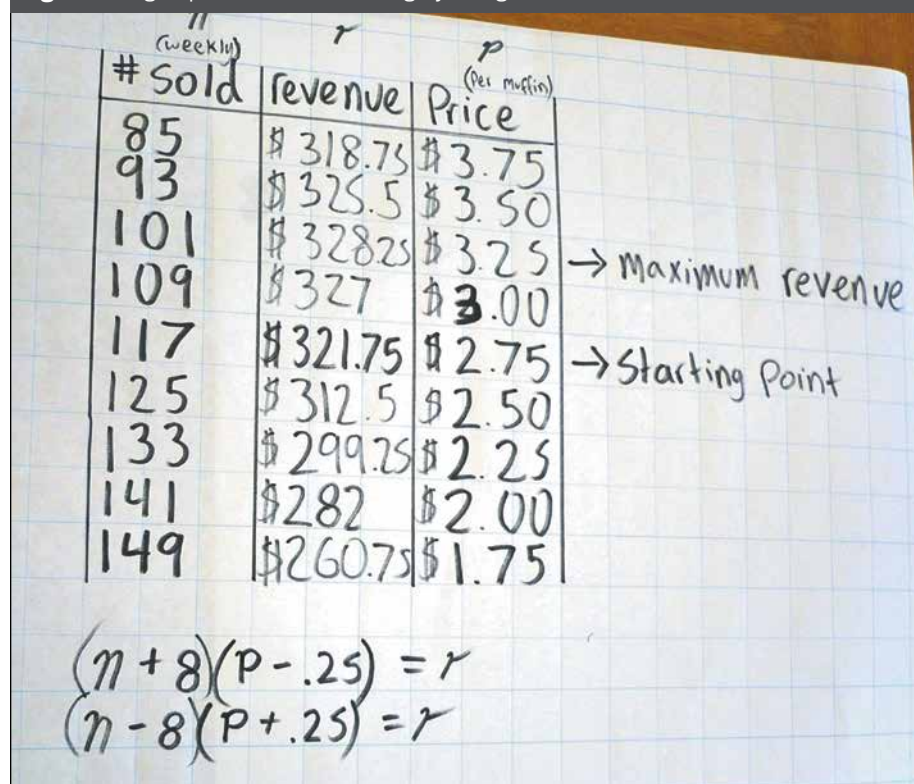 n r p
(weekly) (Per muffin)
# Sold revenue Price
85 $318.75 $3.75
93 $325.5 $3.50
101 $328.25 $3.25 → maximum revenue
109 $327 $3.00
117 $321.75 $2.75 → Starting Point
125 $312.5 $2.50
133 $299.25 $2.25
141 $282 $2.00
149 $260.75 $1.75
(n + 8)(P - .25) = r
(n - 8)(P + .25) = r